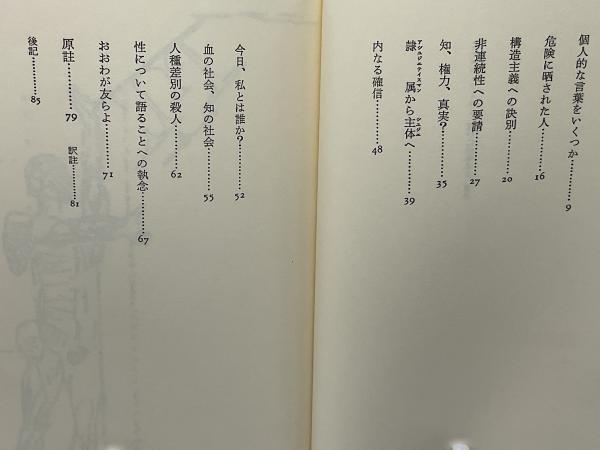 個人的な言葉をいくつか………9
危険に晒された人………16
構造主義への訣別………20
非連続性への要請………27
知、権力、真実?………35
隷属から主体へ………39
内なる確信………48
今日、私とは誰か?………52
血の社会、知の社会………55
人種差別の殺人………62
性について語ることへの執念………67
おおわが友らよ………71
原註………79
訳註………81
後記………85